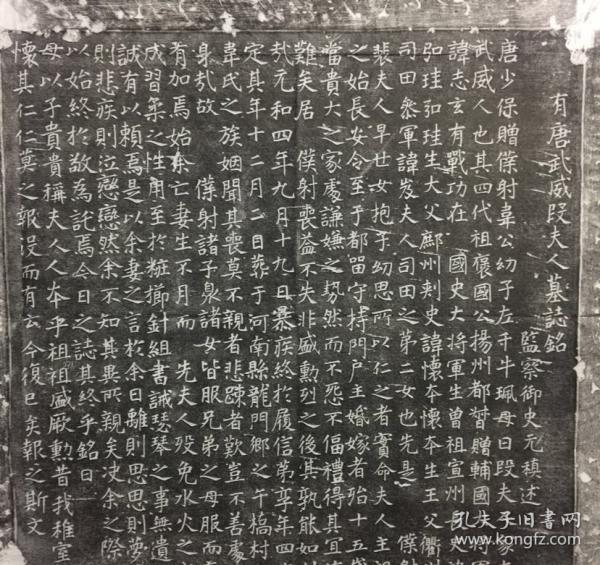 有唐武威段夫人墓誌銘
監察御史元稹述
唐少保贈僕射韋公幼子左千牛珮母曰段夫
武威人也其四代祖褒國公揚州都督贈輔國大將軍
諱志玄有戰功在 國史大將軍生曾祖宣州
弘珪弘珪生大父鄜州刺史諱懷夲懷夲生王父衢州
司田叅軍諱岌夫人司田之第二女也先是 僕射
裴夫人早世女抱子幼思所以仁之者實命夫人主
之始長安令至于都留守持門戶主婚嫁者殆十五
當貴大之家處謙嫌之勢然而不怨不偪禮得其宜
難矣居 僕射喪益不失非盛勳烈之後其孰能如
㢤元和四年九月十九日暴疾終於履信第享年四
定其年十二月二日葬于河南縣龍門鄉之午橋村
韋氏之族姻聞其喪莫不親者悲踈者歎豈不善處
身㢤故 僕射諸子泉諸女皆服兄弟之母服而
有加焉始余亡妻生不月而 先夫人歿免水火之
成習柔之性用至於粧櫛針組書誡琴瑟之事無遺
誠有以頼焉是以余妻之言於余曰離則思思則夢
則悲疾則泣戀戀然余不知其異所親矣决余之際
以始終於敬為託焉今日之誌其終乎銘曰
母以子貴貴稱夫人人夲乎祖祖盛厥勳昔我稚室
懷其仁仁莫之報歿而有云今復已矣報之斯文
孔夫子旧书网
www.kongfz.com